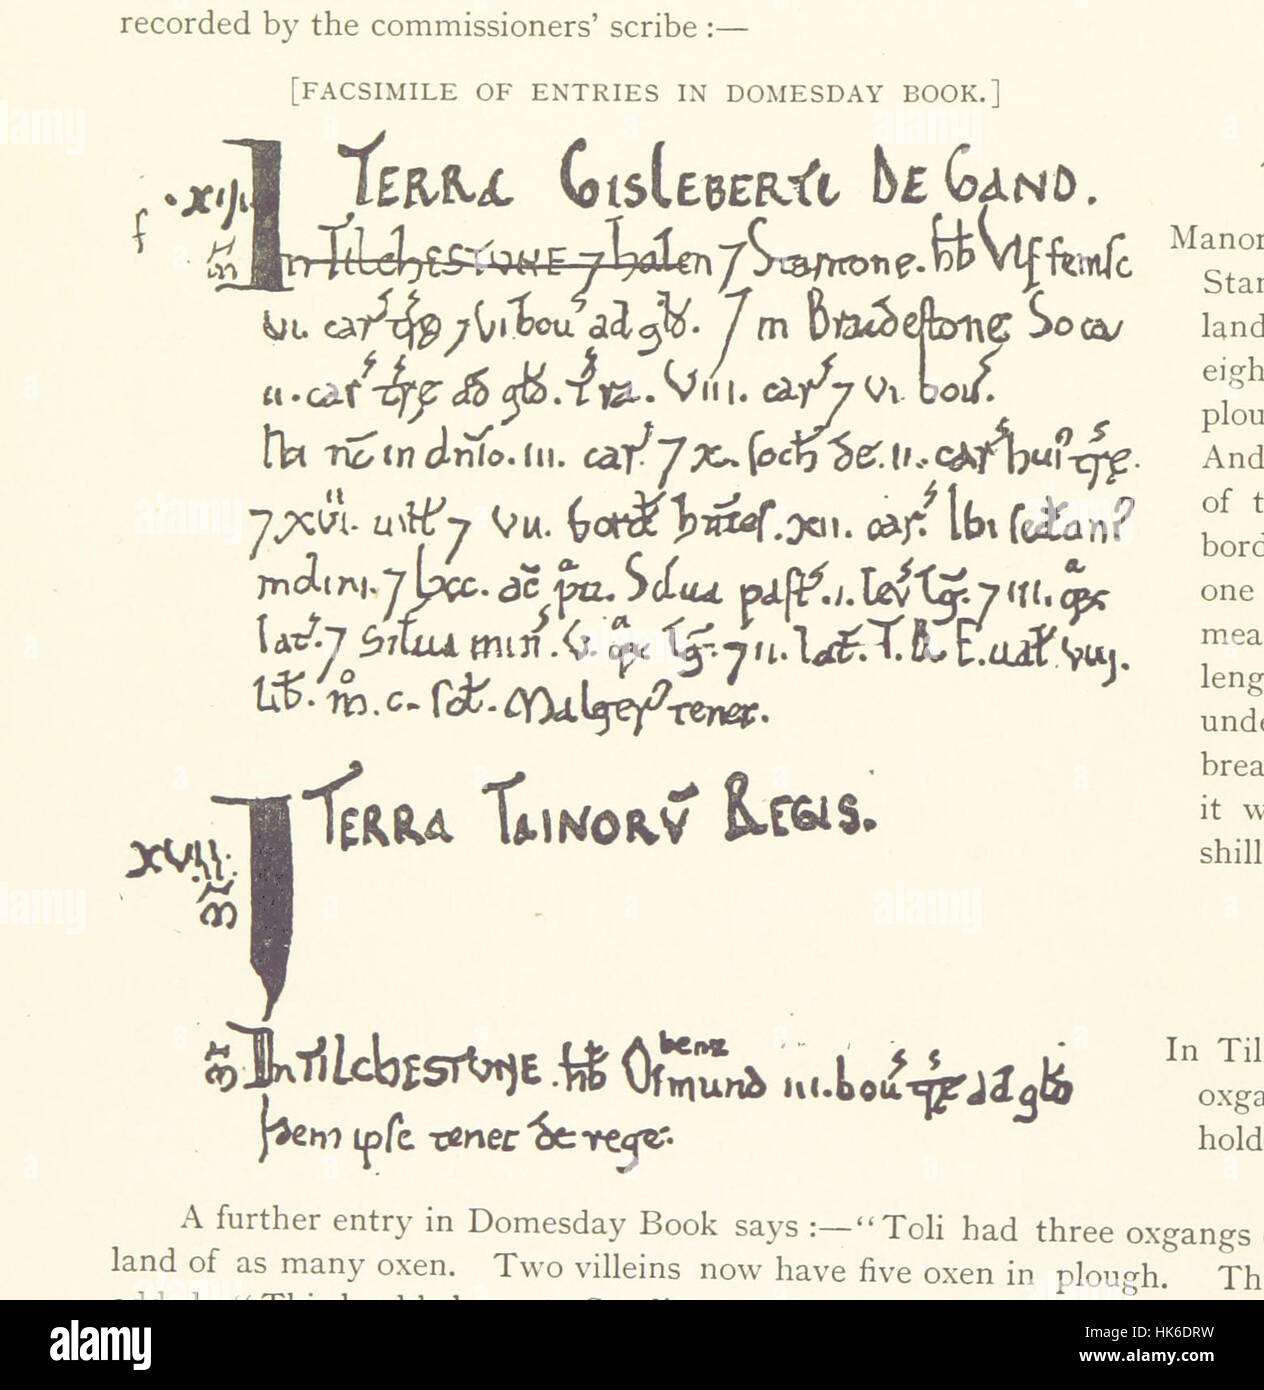 recorded by the commissioners' scribe :—
[FACSIMILE OF ENTRIES IN DOMESDAY BOOK.]
TERRA GISLEBERTI DE GAND.
.XVII.
f
m̃
In TILCHESTUNE ⁊ halen ⁊ Stantone. hb̄ Vlf fenisc
vi. car̃ tr̃e ⁊ vi bou ad gld. In Braidestone Soca
ii. car̃ tr̃e ad gld. Tr̃a. VIII. car̃ ⁊ vi bou.
Ibi nc̄ in dn̄io. iii. car̃. ⁊ x. soch̄ de. ii. car̃ hui tr̃e.
⁊ xvi. uitt ⁊ vii. bord hn̄tes. xii. car̃. Ibi sed an
molini. ⁊ lxx. ac̄ p̃ti. Silua past. i. leu lg̃. ⁊ iii. qr̃
lat̃. ⁊ Silua min. v. qr̃ lg̃. ⁊ ii. lat̃. T. R. E. ual̃ vii.
lib̃. m̊. c. sol̃. Malger tenet.
TERRA TAINORŪ REGIS.
XVIII.
m̃
m̃ In TILCHESTUNE. hb̄ Osmund benz iii. bou tr̃e ad gld
Idem ipse tenet de rege.
Manor
Stan
land
eigh
plou
And
of t
bord
one
mea
leng
unde
brea
it w
shill
In Til
oxga
hold
A further entry in Domesday Book says :—"Toli had three oxgangs
land of as many oxen. Two villeins now have five oxen in plough. Th
alamy
Image ID: HK6DRW
www.alamy.com